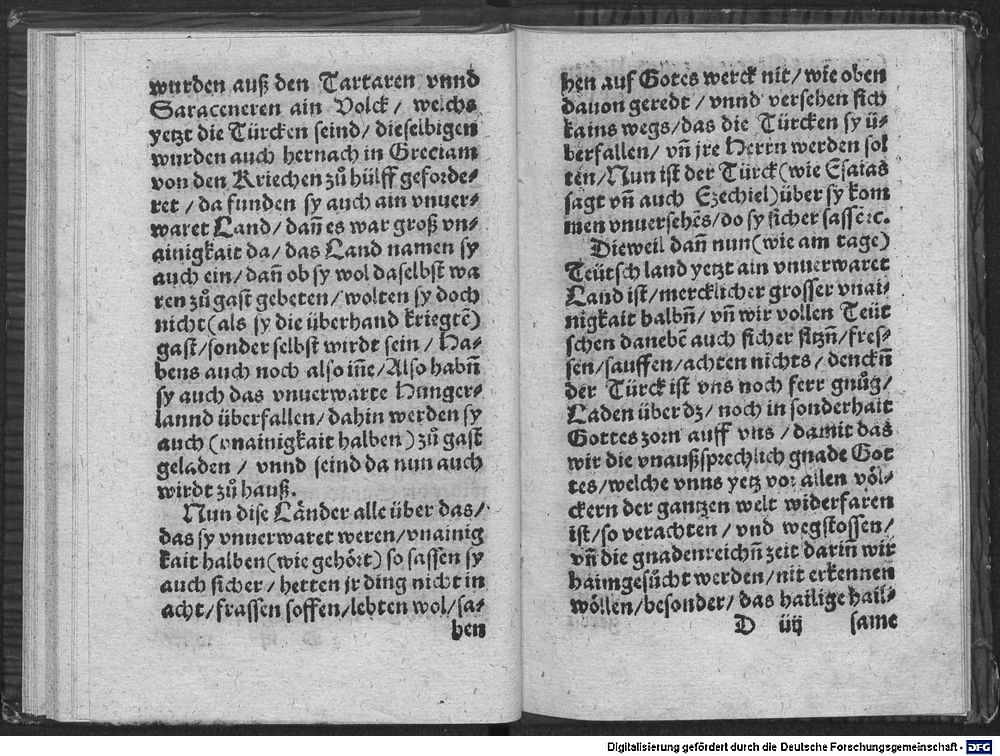 wurden auß den Tartaren vnnd
Saraceneren ain Volck / welchs
yetzt die Türcken seind / dieselbigen
wurden auch hernach in Greciam
von den Kriechen zů hülff geforde⸗
ret / da funden sy auch ain vnuer⸗
waret Land / dañ es war groß vn⸗
ainigkait da / das Land namen sy
auch ein / dañ ob sy wol daselbst wa
ren zů gast gebeten / wolten sy doch
nicht (als sy die überhand kriegtē)
gast / sonder selbst wirdt sein / Ha⸗
bens auch noch also iñe / Also habñ
sy auch das vnuerwarte Hunger⸗
lannd überfallen / dahin werden sy
auch (vnainigkait halben) zů gast
geladen / vnnd seind da nun auch
wirdt zů hauß.
Nun dise Länder alle über das /
das sy vnuerwaret weren / vnainig
kait halben (wie gehört) so sassen sy
auch sicher / hetten jr ding nicht in
acht / frassen soffen / lebten wol / sa⸗
hen
hen auf Gotes werck nit / wie oben
dauon geredt / vnnd versehen sich
kains wegs / das die Türcken sy ü⸗
berfallen / vñ jre Herrn werden sol
ten / Nun ist der Türck (wie Esaias
sagt vñ auch Ezechiel) über sy kom
men vnuersehēs / do sy sicher sassē ꝛc.
Dieweil dañ nun (wie am tage)
Teütsch land yetzt ain vnuerwaret
Land ist / mercklicher grosser vnai⸗
nigkait halbñ / vñ wir vollen Teüt
schen danebē auch sicher sitzñ / fres⸗
sen / sauffen / achten nichts / denckñ
der Türck ist vns noch ferr gnůg /
Laden über dz / noch in sonderhait
Gottes zorn auff vns / damit das
wir die vnaußsprechlich gnade Got
tes / welche vnns yetz vor allen völ⸗
ckern der gantzen welt widerfaren
ist / so verachten / vnd wegstossen /
vñ die gnadenreichñ zeit dariñ wir
haimgesůcht werden / nit erkennen
wöllen / besonder / das hailige hail⸗
D iiij same
Digitalisierung gefördert durch die Deutsche Forschungsgemeinschaft - DFG